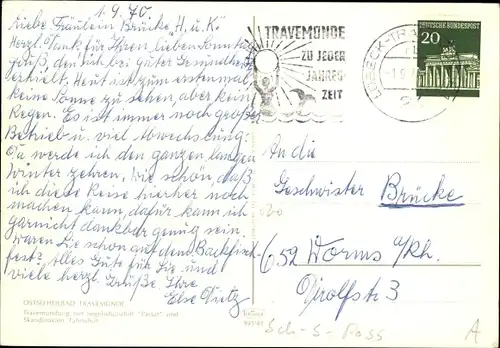 1.9.70.
Liebe Fräulein Brücke, "H. u. K."
Herzl. Dank für Ihren lieben Sonntags
gruß, den ich bei guter Gesundheit
erhielt. Heut ist zum erstenmal
keine Sonne zu sehen, aber kein
Regen. Es ist immer noch großer
Betrieb u. viel Abwechslung.
Da werde ich den ganzen langen
Winter zehren. Wie schön, daß
ich diese Reise hierher noch
machen kann, dafür kann ich
garnicht dankbar genug sein.
Waren Sie schon auf dem Backfisch-
fest? Alles Gute für Sie und
viele herzl. Grüße Ihre
Else
OSTSEEHEILBAD TRAVEMÜNDE
Travemündung mit Segelschulschiff "Passat" und
Skandinavien Fährschiff
TRAVEMÜNDE
ZU JEDER
JAHRES-
ZEIT
LÜBECK-TRA
DEUTSCHE BUNDESPOST
20
An die
Geschwister Brücke
652 Worms a/Rh.
Sch-S-Pass
A